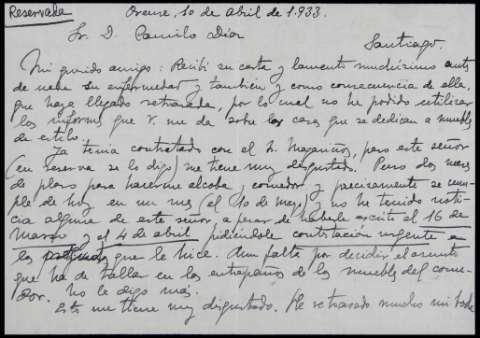 Reservada
Orense, 10 de Abril de 1.933.
Sr. D. Camilo Díaz
Santiago.
Mi querido amigo: Recibí su carta y lamento muchísimo antes
de nada su enfermedad y también, y como consecuencia de ella,
que haya llegado retrasada, por lo cual no he podido utilizar
los informes que V. me da sobre las casas que se dedican a muebles
de estilo.
Ya tenía contratado con el Sr. Magariños, pero este señor
(en reserva se lo digo) me tiene muy disgustado. Puso dos meses
de plazo para hacerme alcoba y comedor y precisamente se cum-
ple de hoy en un mes (el 10 de mayo) y no he tenido noti-
cia alguna de este señor, a pesar de haberle escrito el 16 de
Marzo y el 4 de abril pidiéndole contestación urgente a
las que le hice. Aun falta por decidir el asunto
que ha de tallar en los entrepaños de los muebles del come-
dor. No le digo más.
Esto me tiene muy disgustado. He retrasado mucho mi boda